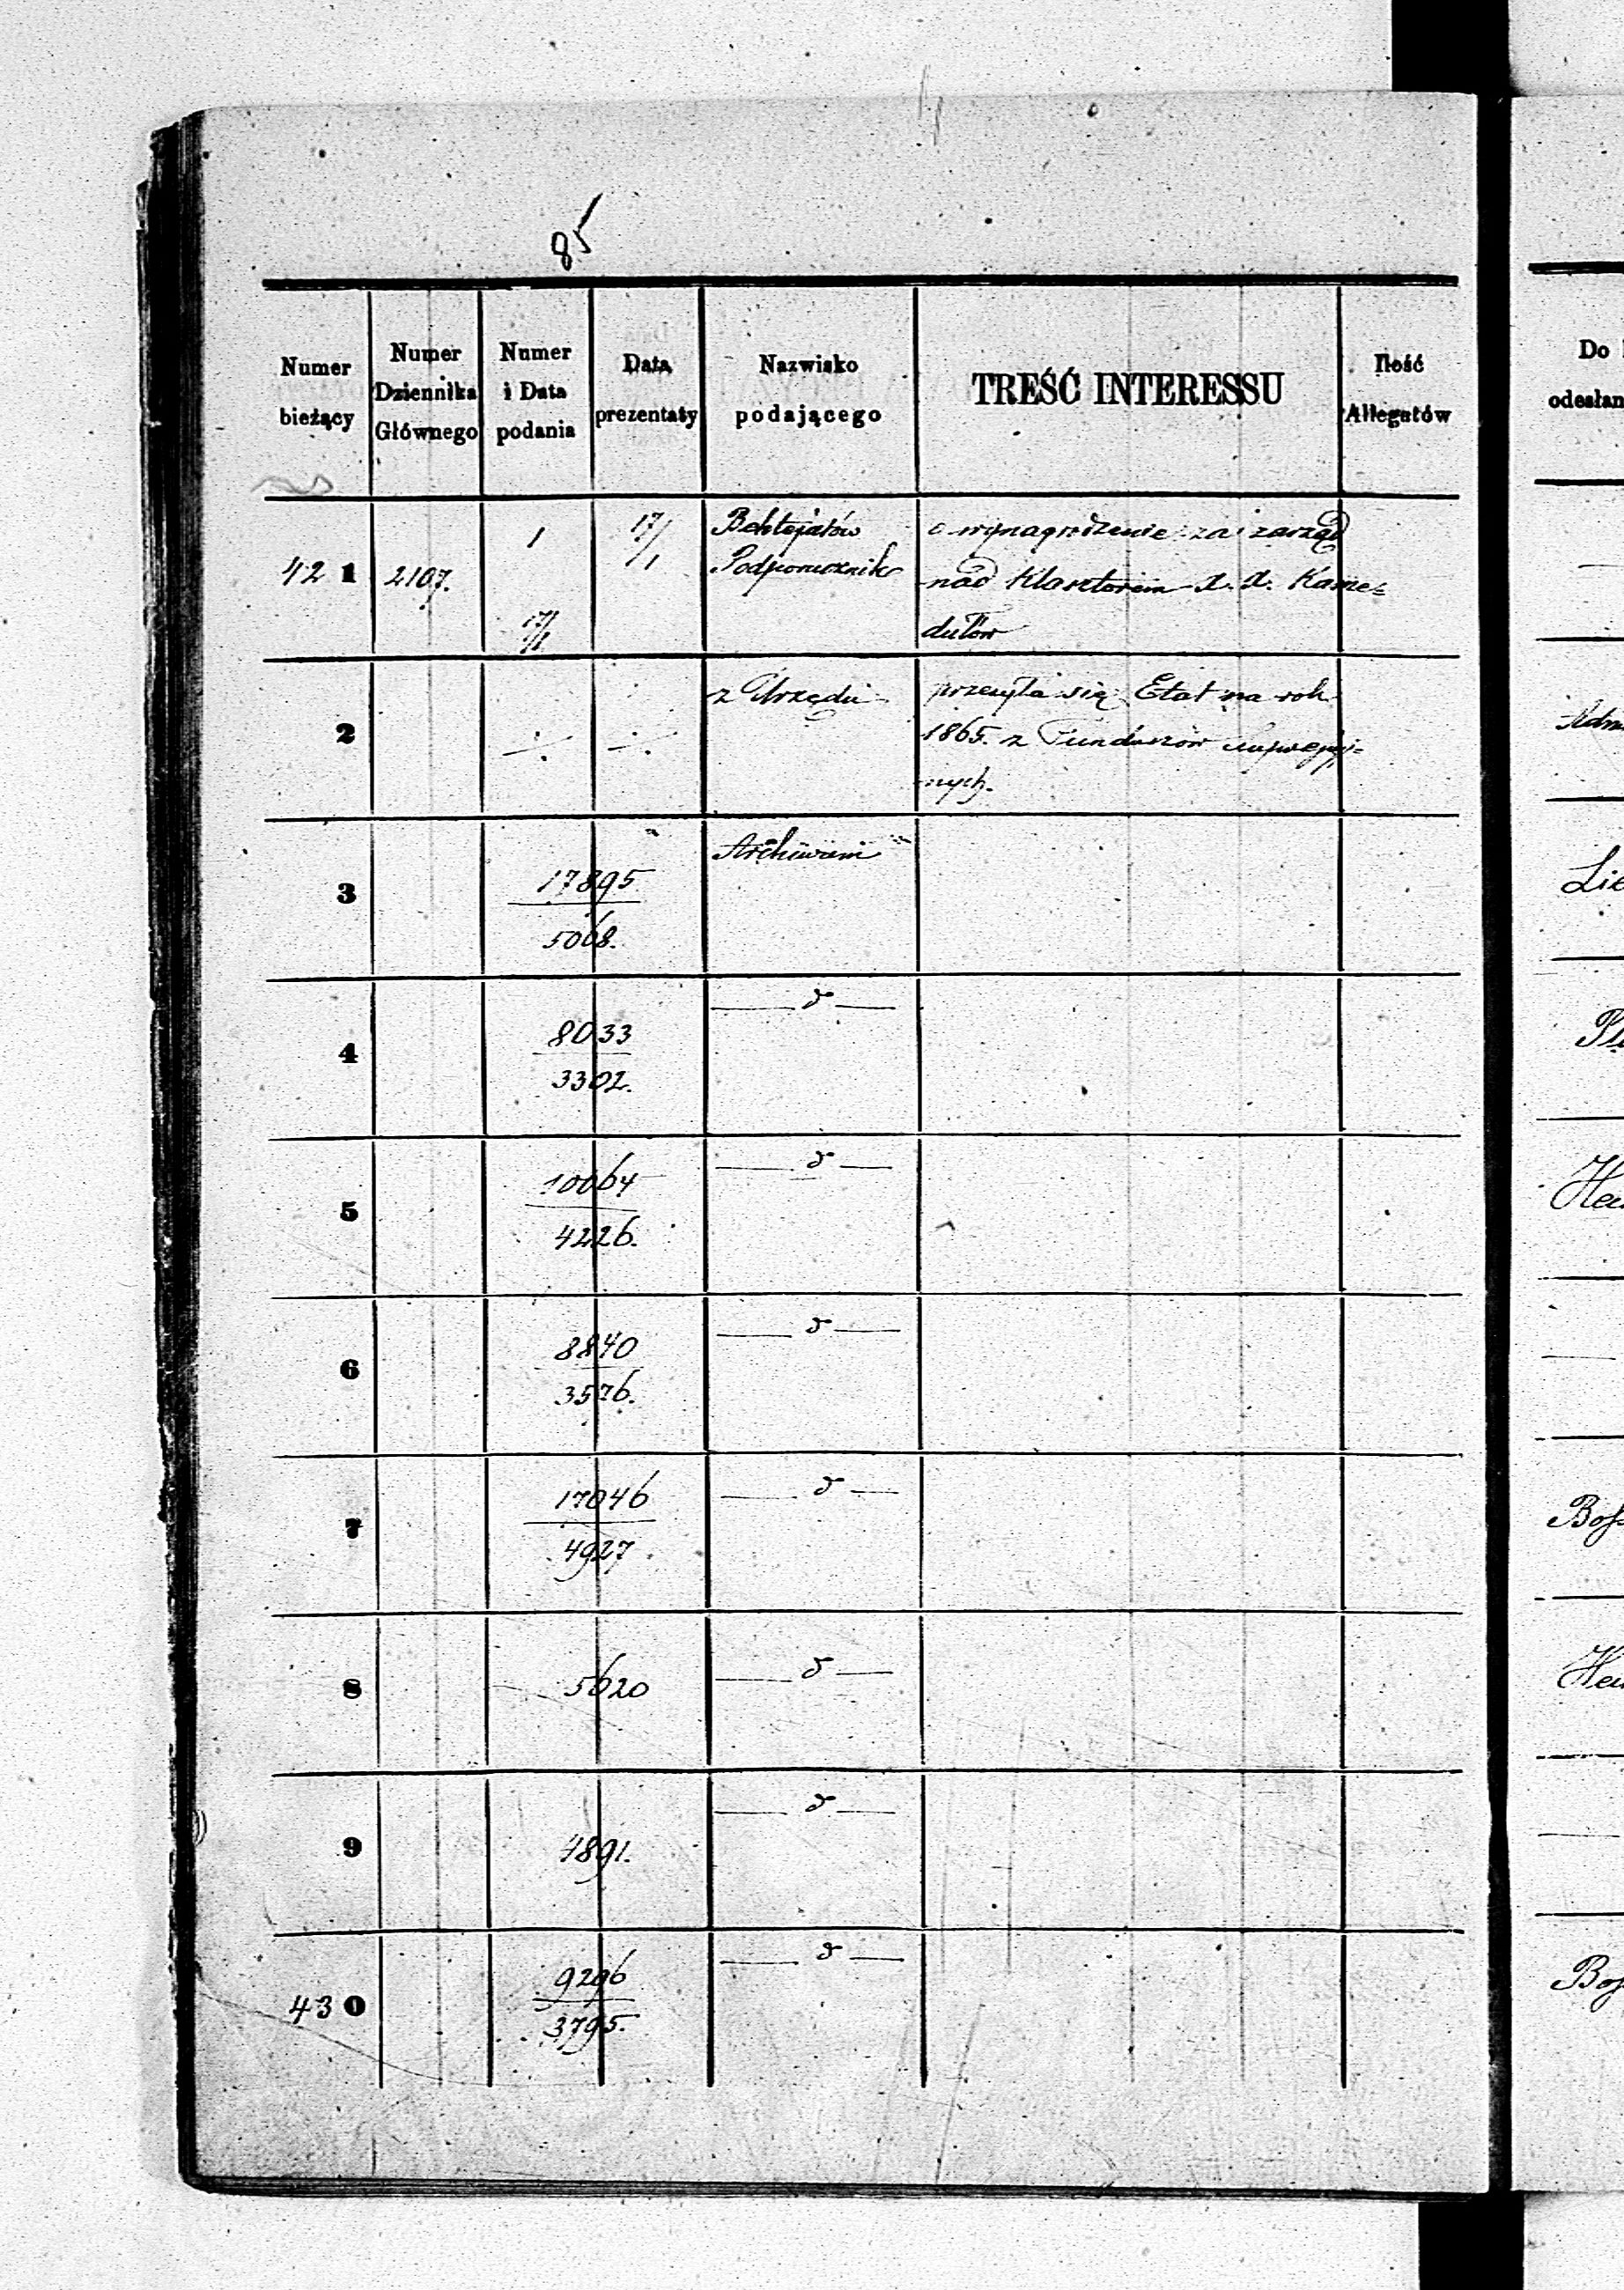 85
Numer bieżący
Numer Dziennika Głównego
Numer i Data podania
Data prezentaty
Nazwisko podającego
TREŚĆ INTERESSU
Ilość Allegatów
Do
odesłan
421 2107. 1 17/1
17/1
Podporucznik
o wynagrodzenie za zarząd
nad Klasztorem X. X. Kame=
dułów
2 z Urzędu
przesyła się Etat na rok
1865. z Funduszów
nych.
3 17895
5068.
Archiwum
Lik
4 8033
3302.
d
5 10064
4226.
d
6 8840
3576.
d
7 17046
4927
d
8 5620
d
9 4891.
d
430 9296
3795.
d